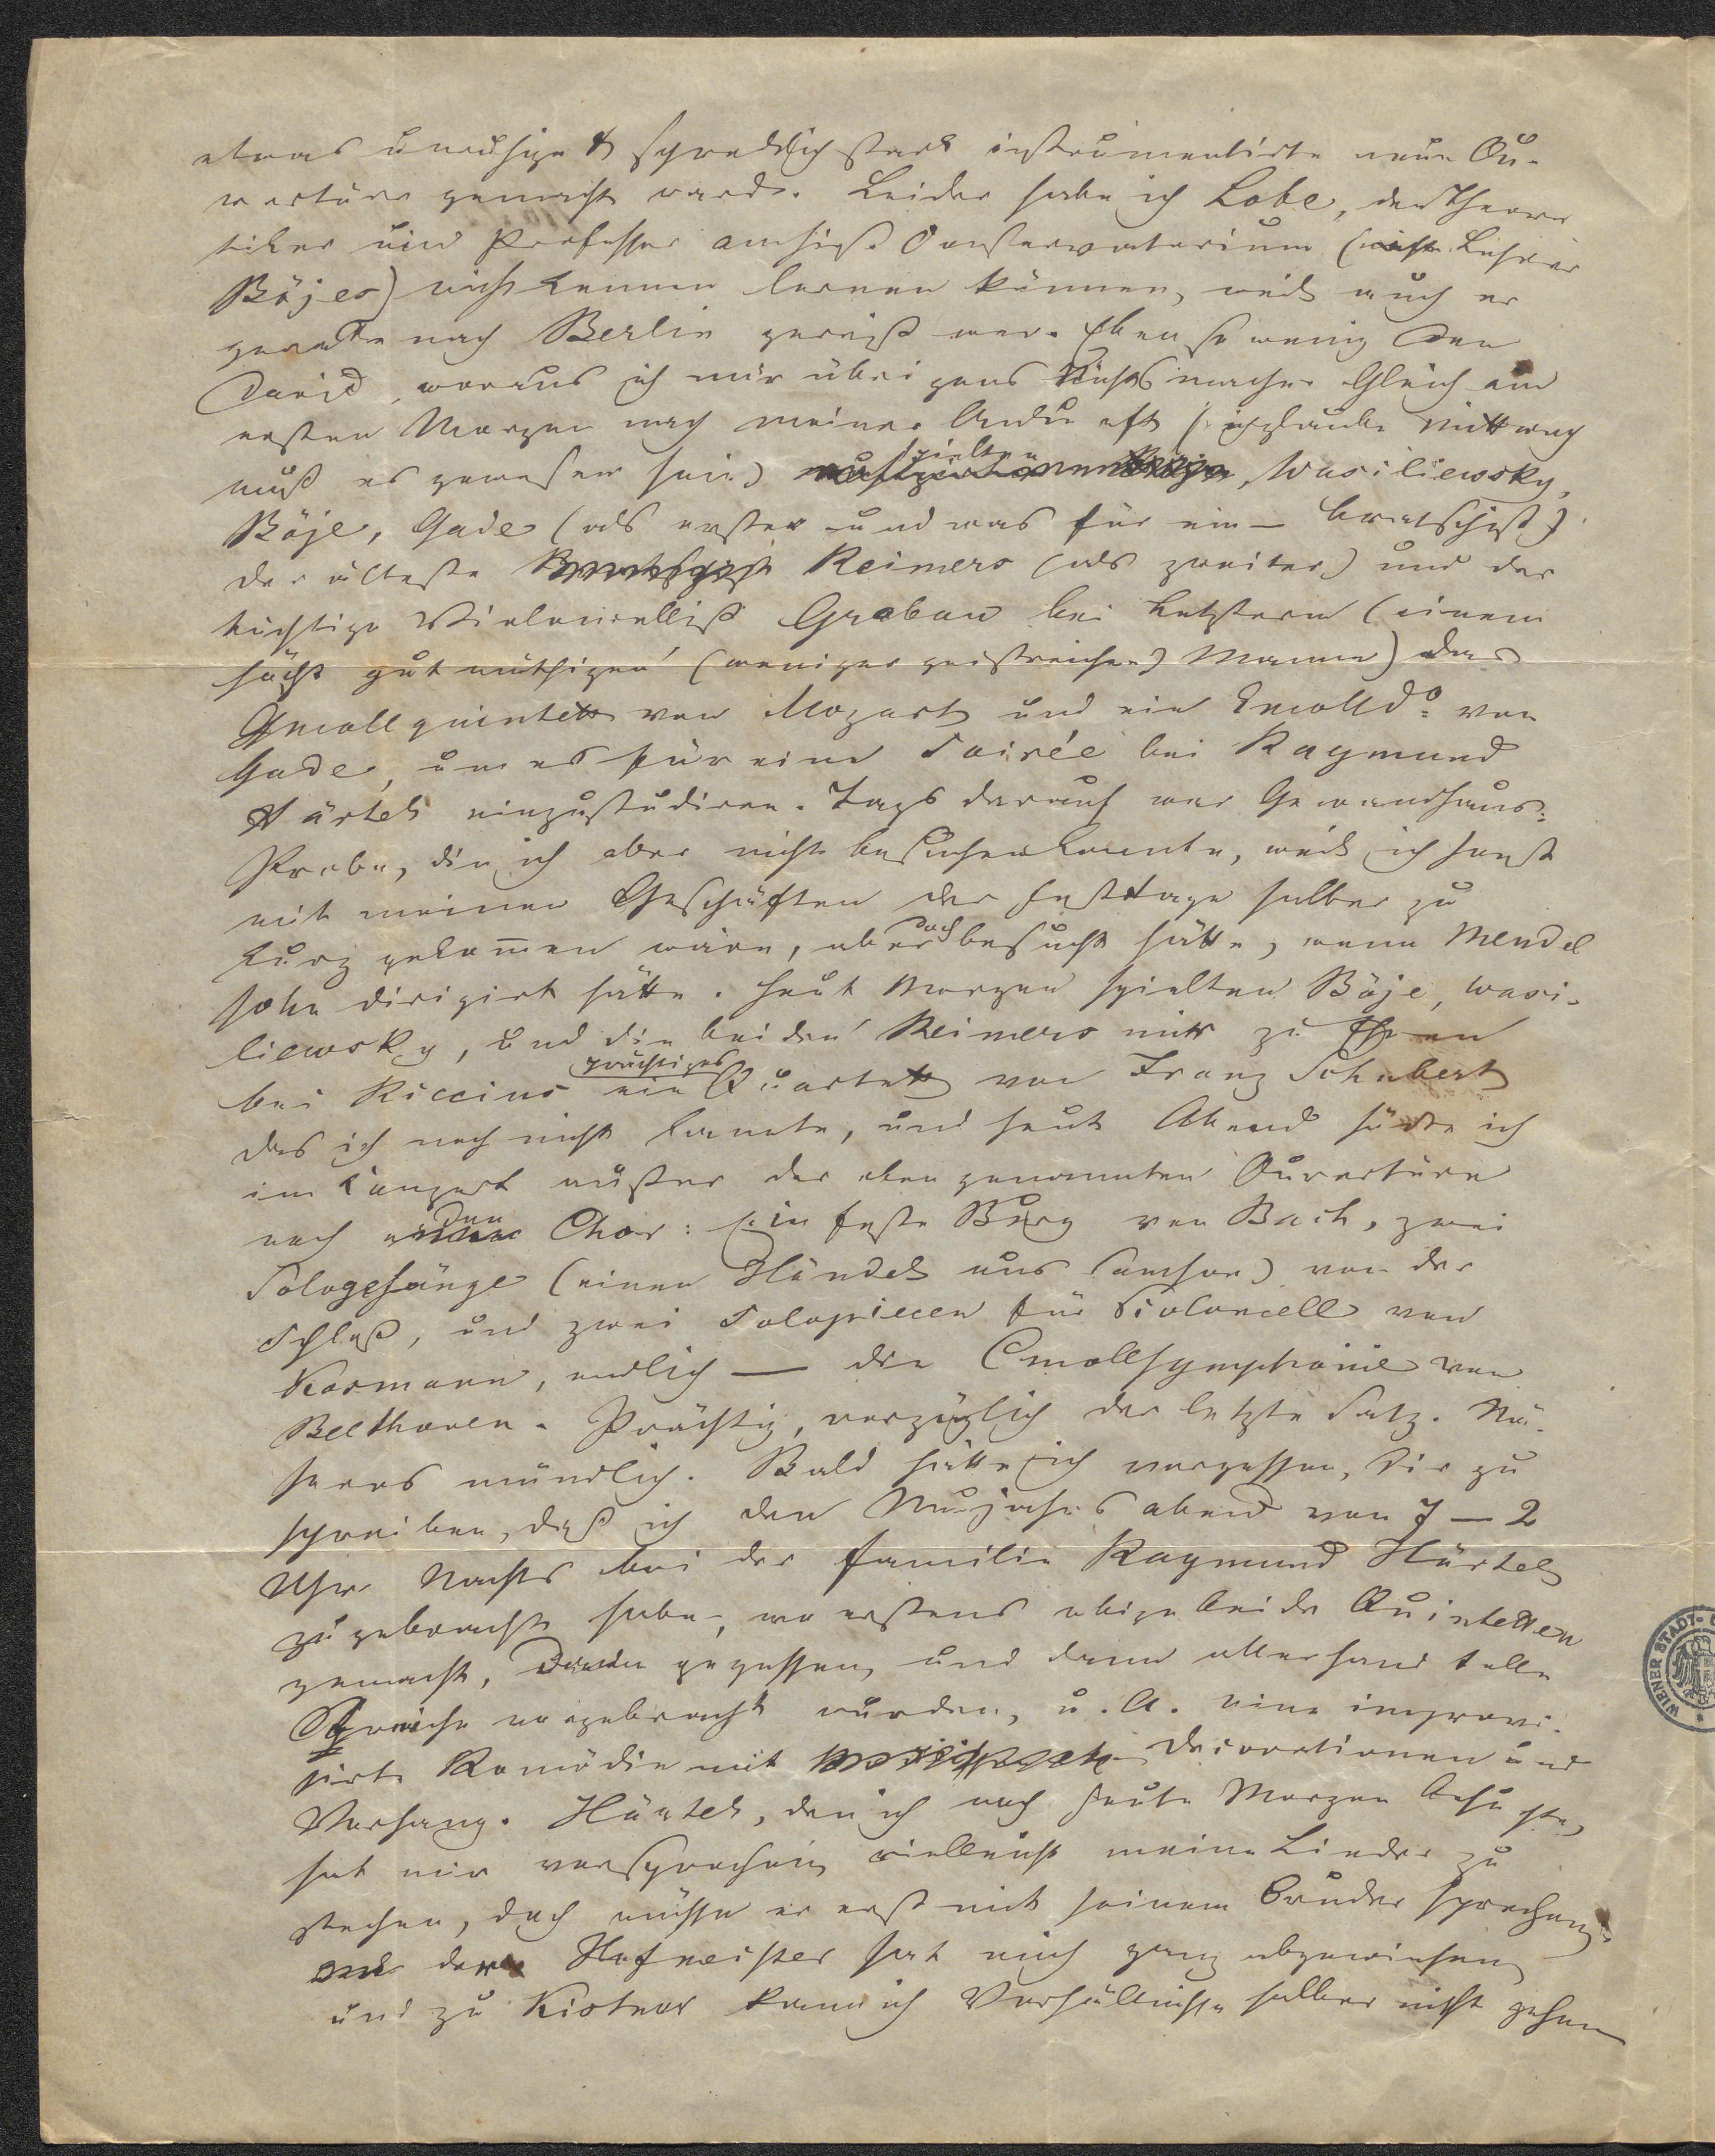 etwas unruhige & schrecklich stark instrumentirte neue Ou-
vertüre gemacht ward. Leider habe ich Lobe, den Theore
tiker und Professor am hies. Conservatorium (nicht Lehrer
Böjes) nicht kennen lernen können, weil auch er
gerade nach Berlin gereist war. Eben so wenig den
David, woraus ich mir übrigens Nichts mache. Gleich am
ersten Morgen nach meiner Ankunft (ich glaube Mittwoch
muß es gewesen sein) spielten Wasiliewsky,
Böje, Gade (als erster – und was für ein – Bratschist)
der älteste Reimers (als zweiter) und der
tüchtige Violoncellist Grabau bei Letzterm (einem
höchst gutmüthigen (weniger geistreichen) Manne) das
Gmollquintett von Mozart und ein Emoll do. von
Gade, um es für eine Soirée bei Raymund
Härtel einzustudiren. Tags darauf war Gewandhaus-
Probe, die ich aber nicht besuchen konnte, weil ich sonst
mit meinen Geschäften der Festtage halber zu
kurz gekommen wäre, aber doch besucht hätte, wenn Mendel
sohn dirigirt hätte. Heut Morgen spielten Böje, Wasi-
liewsky, und die beiden Reimers mir zu Ehren
bei Riccius ein prächtiges Quartett von Franz Schubert
das ich noch nicht kannte, und heut Abend hörte ich
im Konzert außer der oben genannten Ouvertüre
noch den Chor: Ein feste Burg von Bach, zwei
Sologesänge (einen Händel aus Samson) von der
Schloß, und zwei Solopiecen für Violoncell von
Kosmann, endlich — die Cmollsymphonie von
Beethoven. Prächtig, vorzüglich der letzte Satz. Nä-
heres mündlich. Bald hätte ich vergessen, Dir zu
schreiben, daß ich den Neujahrsabend von 7 — 2
Uhr Nachts bei der Familie Raymund Härtel
zugebracht habe, wo erstens obige beide Quintetten
gemacht, dann gegessen, und dann allerhand tolle
Streiche vorgebracht wurden, u. A. eine improvi-
sirte Komödie mit Decorationen und
Vorhang. Härtel, den ich noch heute Morgen besuchte,
hat mir versprochen, vielleicht meine Lieder zu
stechen, doch müsse er erst mit seinem Bruder sprechen;
der Hofmeister hat mich ganz abgewiesen
und zu Kistner kann ich Verhältnisse halber nicht gehen
WIENER STADT-